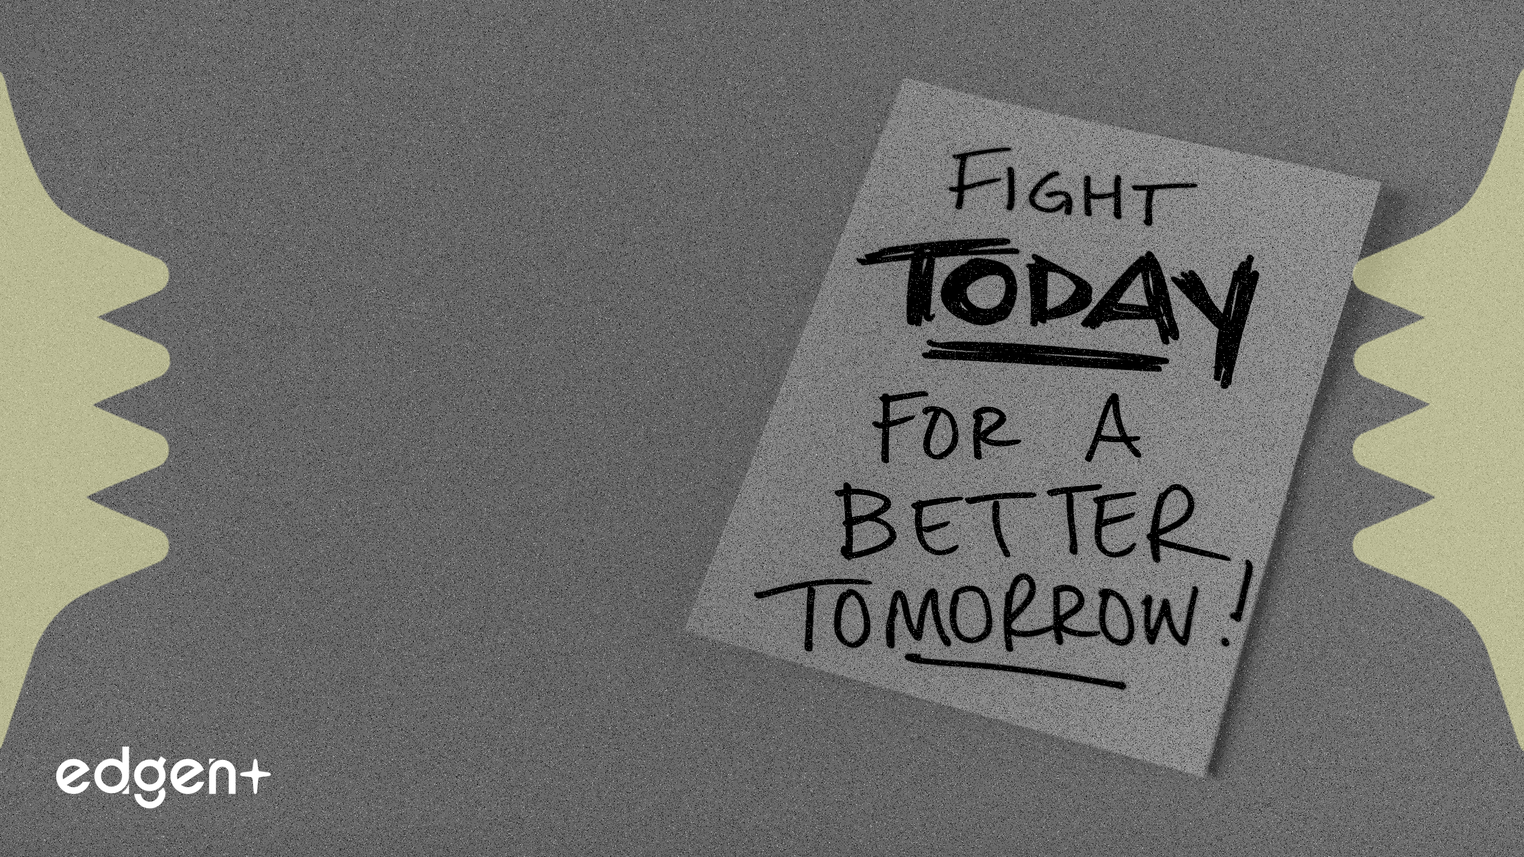 FIGHT
TODAY
FOR A
BETTER
TOMORROW!
edgen+